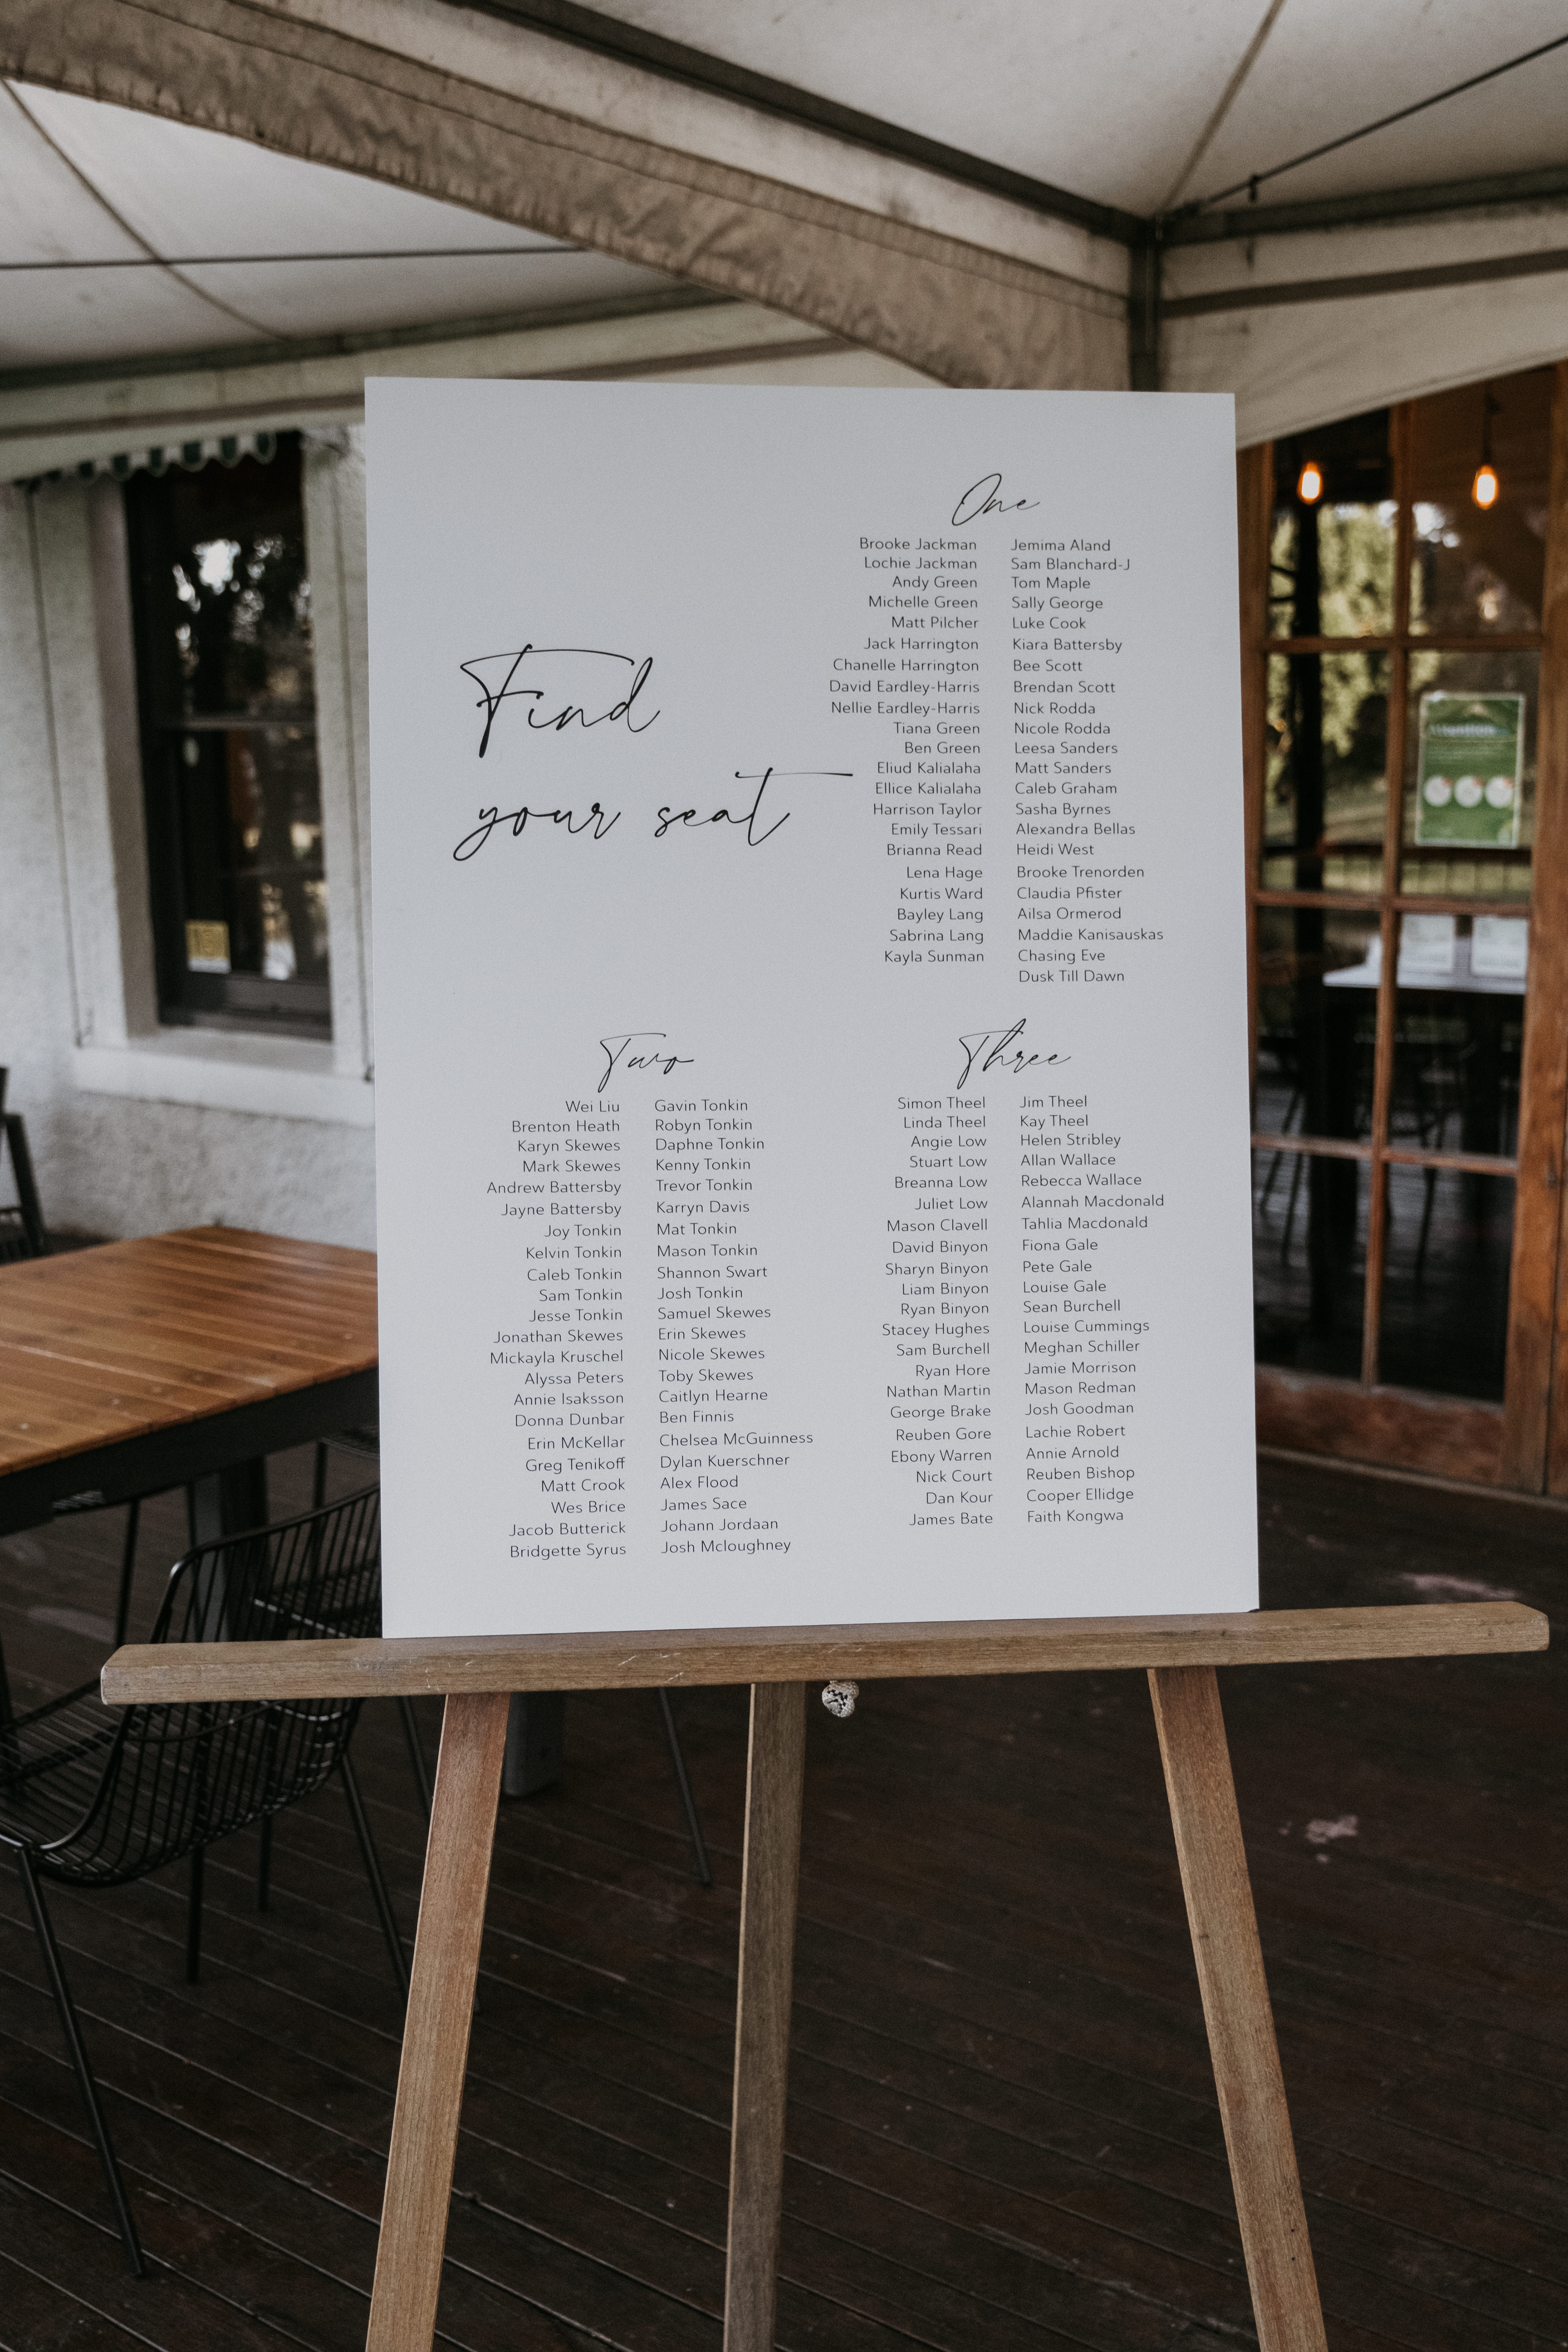 Find
your seat
One
Brooke Jackman Jemima Aland
Lochie Jackman Sam Blanchard-J
Andy Green Tom Maple
Michelle Green Sally George
Matt Pilcher Luke Cook
Jack Harrington Kiara Battersby
Chanelle Harrington Bee Scott
David Eardley-Harris Brendan Scott
Nellie Eardley-Harris Nick Rodda
Tiana Green Nicole Rodda
Ben Green Leesa Sanders
Eliud Kalialaha Matt Sanders
Ellice Kalialaha Caleb Graham
Harrison Taylor Sasha Byrnes
Emily Tessari Alexandra Bellas
Brianna Read Heidi West
Lena Hage Brooke Trenorden
Kurtis Ward Claudia Pfister
Bayley Lang Ailsa Ormerod
Sabrina Lang Maddie Kanisauskas
Kayla Sunman Chasing Eve
Dusk Till Dawn
Two
Wei Liu Gavin Tonkin
Brenton Heath Robyn Tonkin
Karyn Skewes Daphne Tonkin
Mark Skewes Kenny Tonkin
Andrew Battersby Trevor Tonkin
Jayne Battersby Karryn Davis
Joy Tonkin Mat Tonkin
Kelvin Tonkin Mason Tonkin
Caleb Tonkin Shannon Swart
Sam Tonkin Josh Tonkin
Jesse Tonkin Samuel Skewes
Jonathan Skewes Erin Skewes
Mickayla Kruschel Nicole Skewes
Alyssa Peters Toby Skewes
Annie Isaksson Caitlyn Hearne
Donna Dunbar Ben Finnis
Erin McKellar Chelsea McGuinness
Greg Tenikoff Dylan Kuerschner
Matt Crook Alex Flood
Wes Brice James Sace
Jacob Butterick Johann Jordaan
Bridgette Syrus Josh Mcloughney
Three
Simon Theel Jim Theel
Linda Theel Kay Theel
Angie Low Helen Stribley
Stuart Low Allan Wallace
Breanna Low Rebecca Wallace
Juliet Low Alannah Macdonald
Mason Clavell Tahlia Macdonald
David Binyon Fiona Gale
Sharyn Binyon Pete Gale
Liam Binyon Louise Gale
Ryan Binyon Sean Burchell
Stacey Hughes Louise Cummings
Sam Burchell Meghan Schiller
Ryan Hore Jamie Morrison
Nathan Martin Mason Redman
George Brake Josh Goodman
Reuben Gore Lachie Robert
Ebony Warren Annie Arnold
Nick Court Reuben Bishop
Dan Kour Cooper Ellidge
James Bate Faith Kongwa